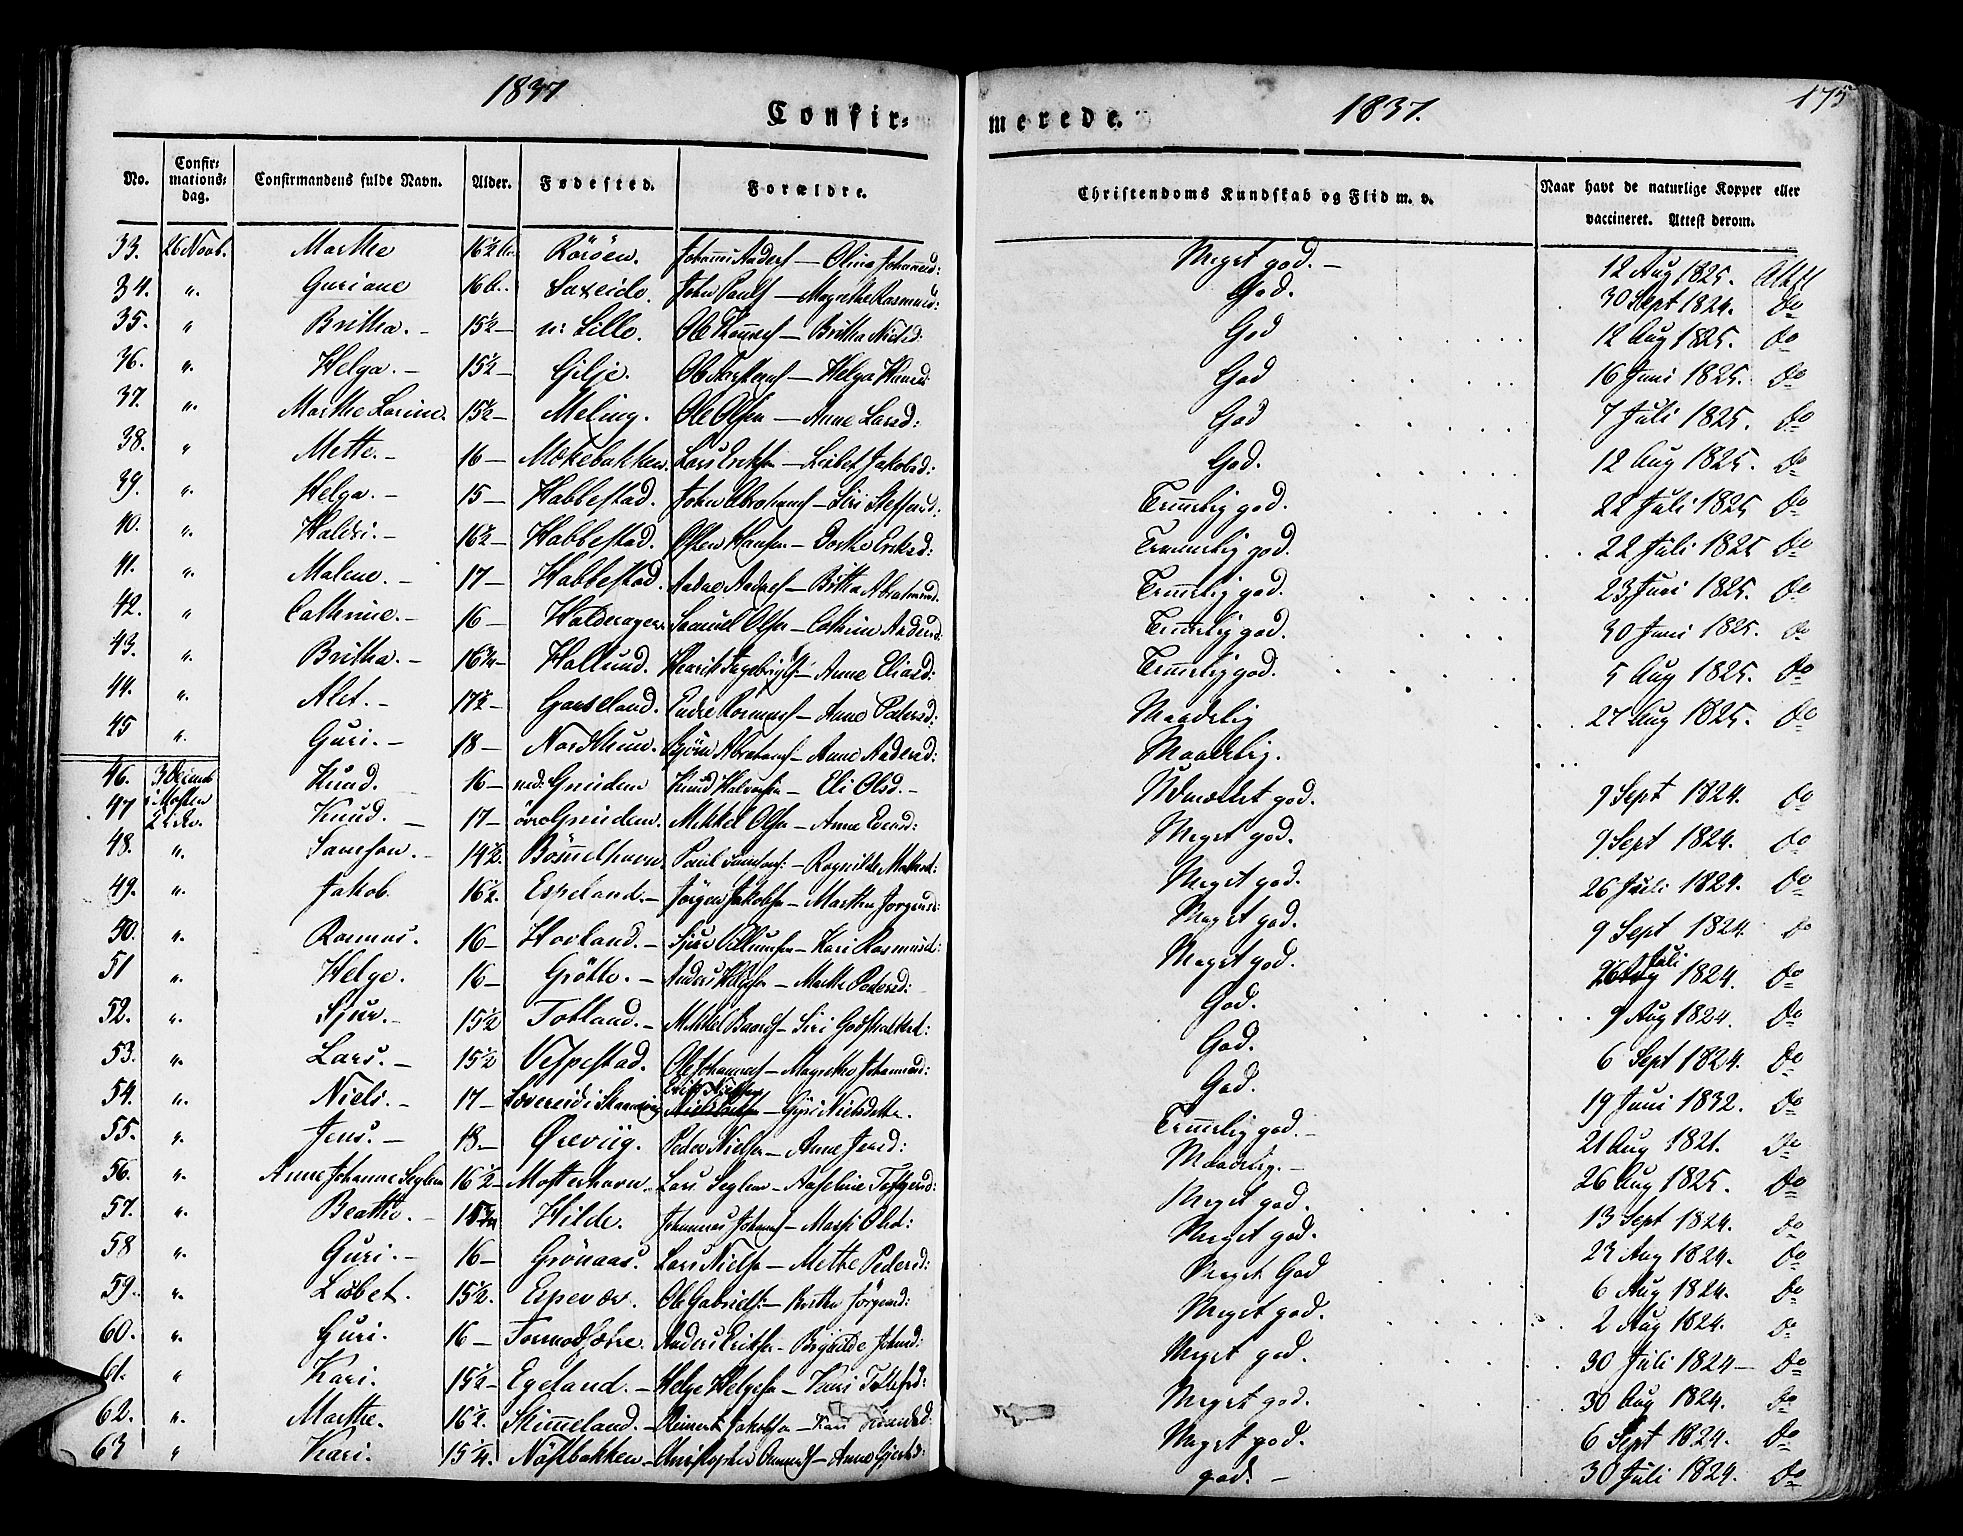 1837
Confir=
merede.
1837.
175
No. Confir= mations= dag. Confirmandens fulde Navn. Alder. Fødested. Forældre. Christendoms Kundskab og Flid m. v. Naar havt de naturlige Kopper eller vaccineret. Attest derom.
33. 26 Novb. Marthe 16½ Röröen. Meget god. – 12 Aug 1825. Attest
34. " Guriane 16 Saxeide. John Pauls – Magrethe Rasmusd: God. 30 Sept 1824. Do
35. " Britha. – 15½ – n: Lille. – Britha Nielsd: God 12 Aug 1825. Do
36. " Helga. – 15½ – Gilje. – Helga God 16 Juni 1825. Do
37. " Marthe Larine. 15½ – Meling. Ole Olsen – Anne Larsd: God 7 Juli 1825. Do
38. " Mette. – 16 – Mækebakken. Lars Eriksen – Lisbet Jakobsd: God. 12 Aug 1825. Do
39. " Helga. – 15 – Habbestad. John Abrahams – Siri Steffensd: Temmelig god. 22 Juli 1825 Do
40. " Haldri. – 16½ – Habbestad. Hansen – Dorthe Eriksd: Temmelig god. 22 Juli 1825 Do
41. " Malene. – 17 – Habbestad. – Britha Abrahamsd. Temmelig god. 23 Juni 1825. Do
42. " Cathrine. – 16 – Halderager. Samuel Olsen – Cathrine Andersd. Temmelig god. 30 Juni 1825. Do
43. " Britha. – 16¾ – Hallund. Henrik Ingebrigts – Anne Eliasd: Temmelig god. 5 Aug 1825. Do
44. " Alet. – 17½ – Gaaseland. Endre Rasmuss – Anne Pedersd: Maadelig 27 Aug 1825. Do
45 " Guri. – 18 – Nordthun. Björn Abrahams – Anne Andersd: Maadelig.
46. 3 Decemb Knud. 16 – ned: Gneiden Knud Halvorsen – Eli Olsd. – Udmærket god. 9 Sept 1824. Do
47 i Moster 2 Adv. Knud. – 17 – övre Gneiden. Mikkel Olsen – Anne Meget god. 9 Sept 1824. Do
48. " Samson. – 14½. Bömmelhavn. Paul Samsons: – Ragnilde Meget god. 26 Juli 1824. Do
49. " Jakob 16½. Espeland. – Jörgen Jakobsen – Marthe Jorgensd: Meget god. 9 Sept 1824 Do
50. " Rasmus. 16 – Hovland. – Sjur Villumsen – Kari Rasmusd: Meget god. 26 Juli 1824. Do
51 " Helge. 16 – Grötte. – Anders Helgesen – Marthe Pedersd: God. 9 Aug 1824. Do
52. " Sjur. – 15½ Totland. – Mikkel Baards – Siri Godskalksd: God. 6 Sept 1824. Do
53. " Lars. – 15½ Vespestad. Ole Johannes – Magrethe Johannesd: God. 19 Juni 1832. Do
54. " Niels. – 17 – i Skaanevig Erik Nielsen – Giöri Nielsdatter. Temmelig god. – 21 Aug 1821. Do
55. " Jens. – 18 – Ørevig. Peder Nielsen – Anne Jensd: Maadelig. – 26 Aug 1825. Do
56. " Anne Johanne Seglem 16½ – Mosterhavn. Lars Seglem – Meget god. 13 Sept 1824. Do
57. " Beathe. – 15¾ Hilde. Johannes Johans – Marthe Olsd: Meget god. 27 Aug 1824. Do
58 " Guri. – 16 – Grönaas. Lars Nielsen – Mette Pedersd: Meget God 6 Aug 1824. Do
59. " Lisbet. 15½. Espevær. Ole Gabriels: – Britha Jörgensd: Meget god. 2 Aug 1824. Do
60. " Guri. 16 – Tormodsætre. Anders Eriksen – Brynilde Johnsd: Meget god. 30 Juli 1824 – Do
61. " Kari. 15½ – Egeland. – Helge Helgesen – Kari Tollefsd: Meget god. 30 Aug 1824. Do
62. " Marthe. 16½. Skimmeland. – Reinert Jakobsen – Kari Meget god. 6 Sept 1824. Do
63 " Kari. 15¼. Nöstbakken. – Christopher – Anne god. – 30 Juli 1824. Do